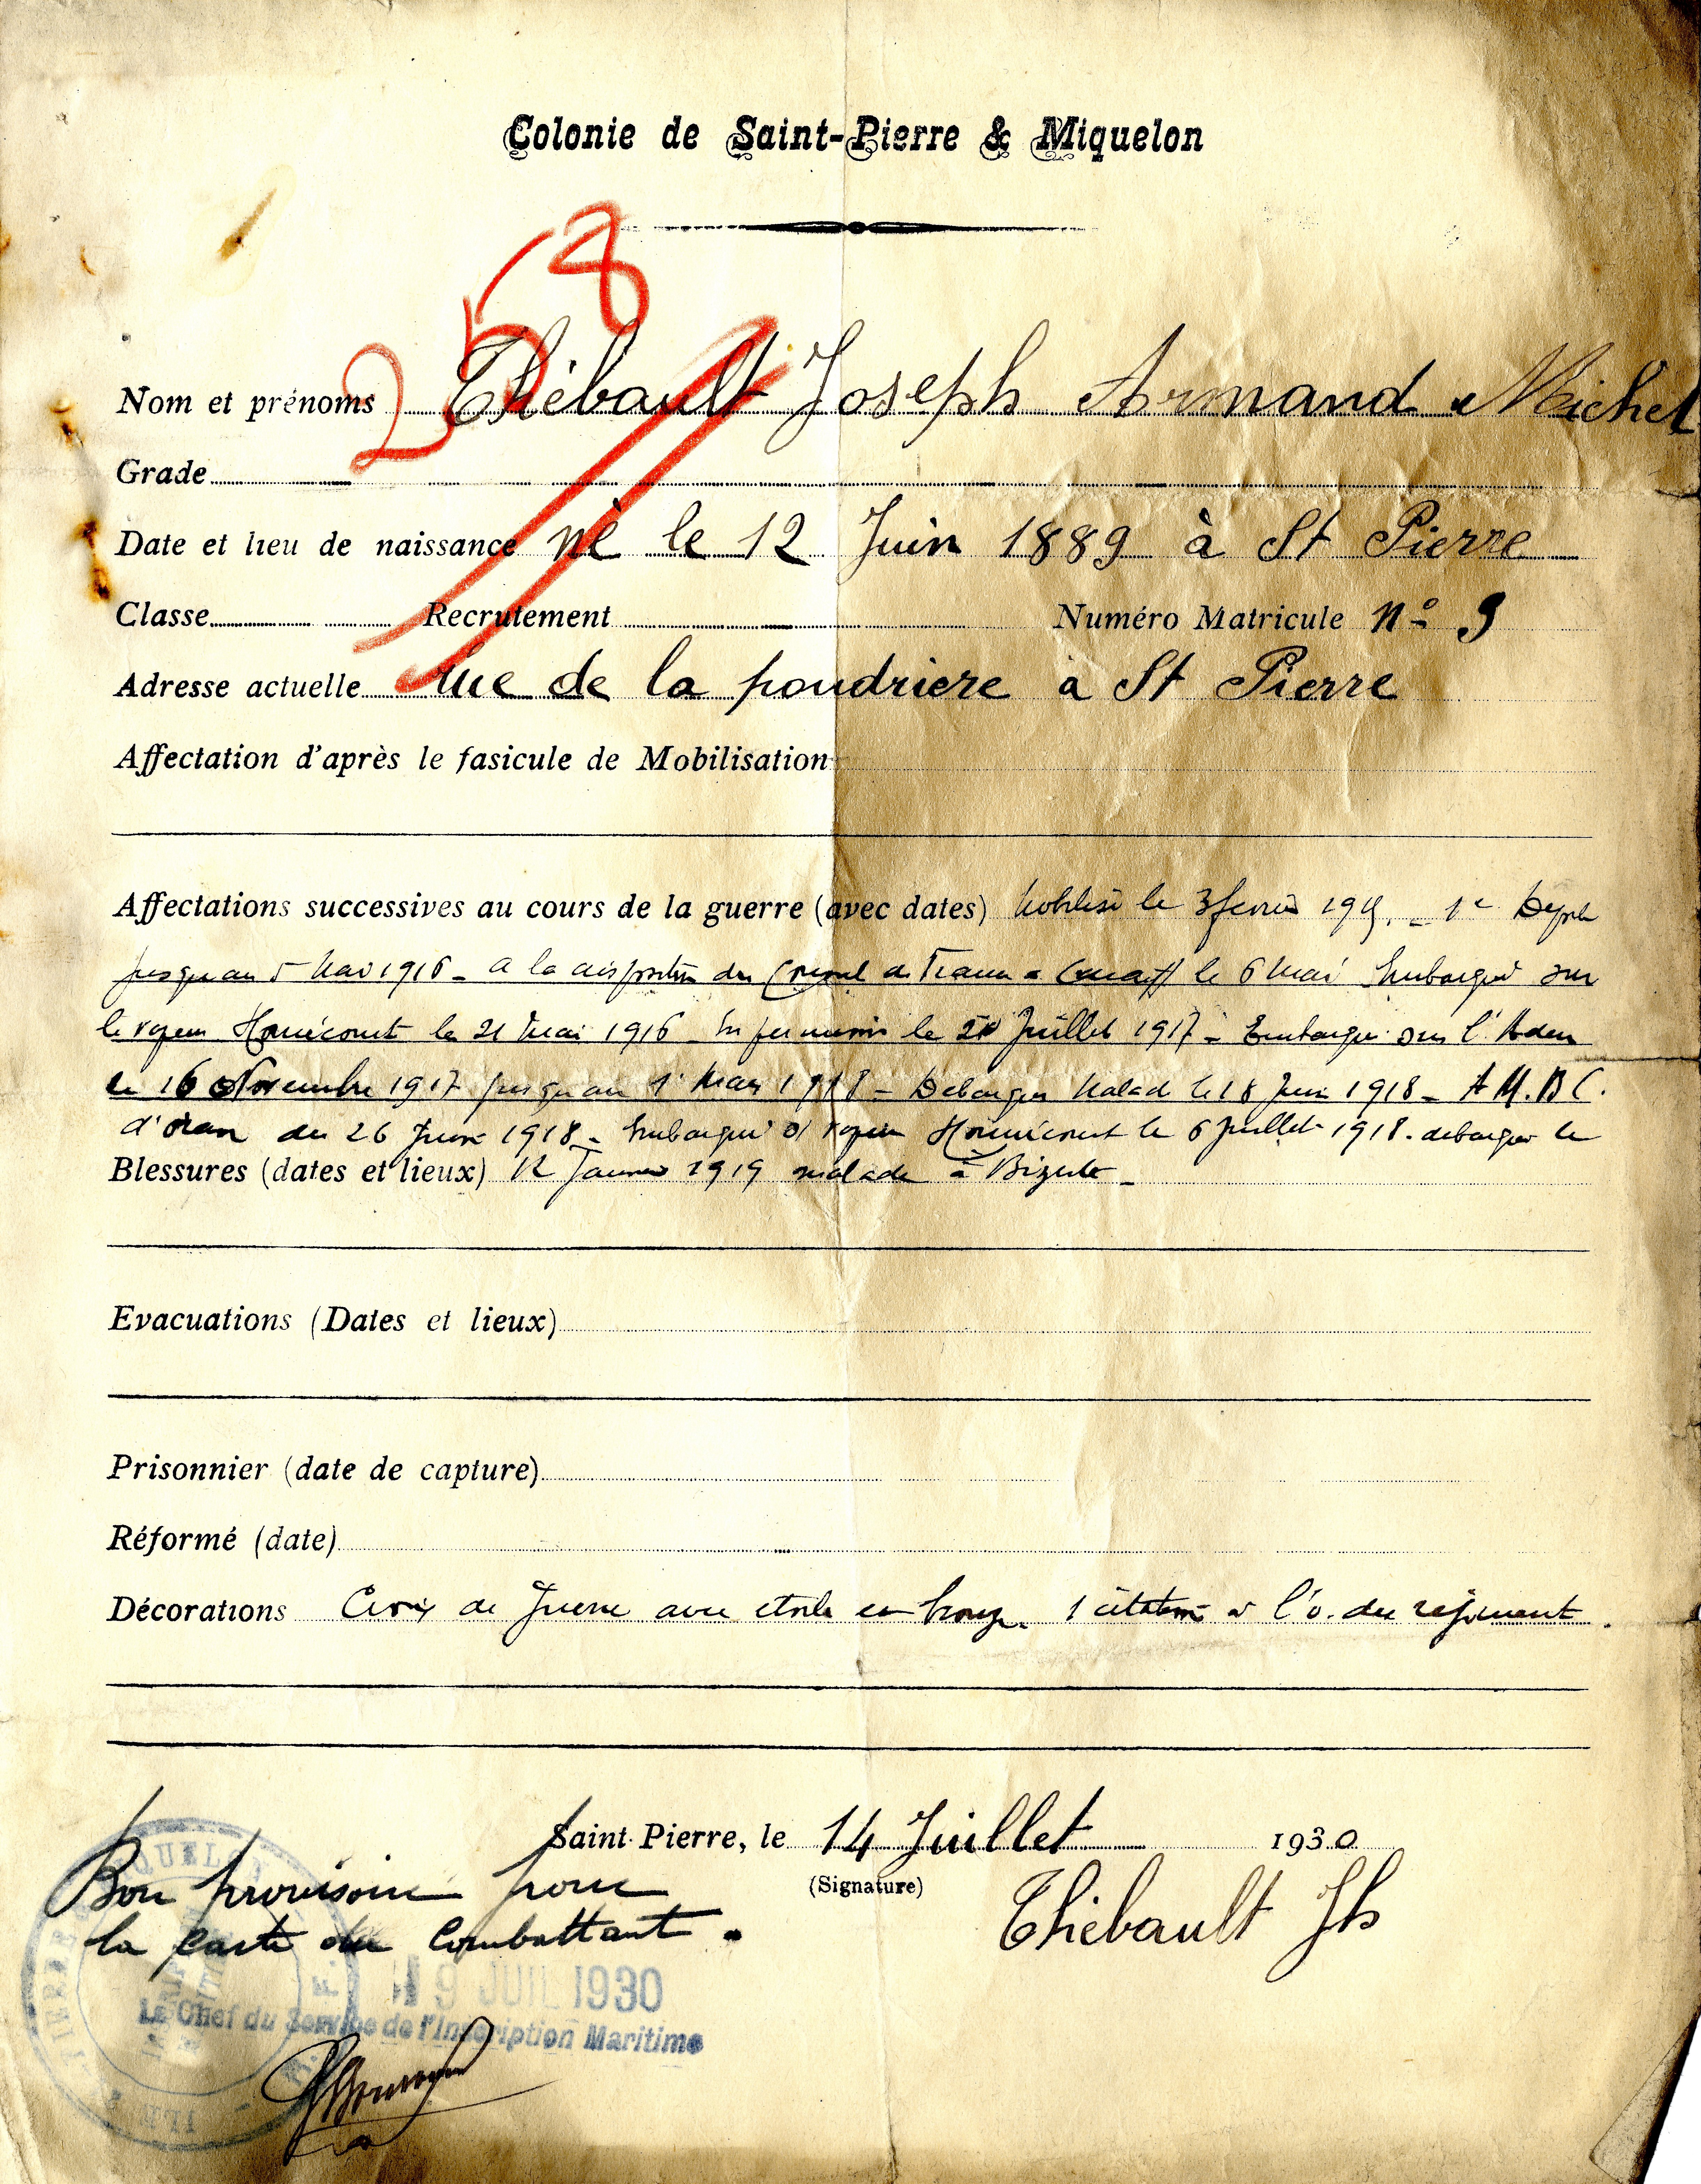 Colonie de Saint-Pierre & Miquelon
258
Nom et prénoms Thébault Joseph Armand Michel
Grade
Date et lieu de naissance né le 12 Juin 1889 à St Pierre
Classe Recrutement Numéro Matricule n° 9
Adresse actuelle rue de la poudriere à St Pierre
Affectation d'après le fasicule de Mobilisation
Affectations successives au cours de la guerre (avec dates) le 3 - 1e Depot
jusqu'au 5 Mai 1916 - a la disposition du le 6 Mai Embarqué sur
le vapeur Homécourt le 21 Mai 1916 le Juillet 1917 - Embarqué sur l'Aden
le 16 Novembre 1917 jusqu'au 1 Mars 1918 - Debarqué Malade le 18 Juin 1918 - A M. B C.
d'oran du 26 Juin 1918 - Embarqué s/ vapeur Homécourt le 6 Juillet 1918. debarqué le
Blessures (dates et lieux) 12 Janvier 1919 malade à Bizerte -
Evacuations (Dates et lieux)
Prisonnier (date de capture)
Réformé (date)
Décorations Croix de Guerre avec etoile en bronze. 1 citation à l'o. du regiment.
Saint-Pierre, le 14 Juillet 1930
(Signature)
Thébault Jh
Bon provisoire pour
la carte du Combattant.
19 JUIL 1930
Le Chef du Service de l'Inscription Maritime